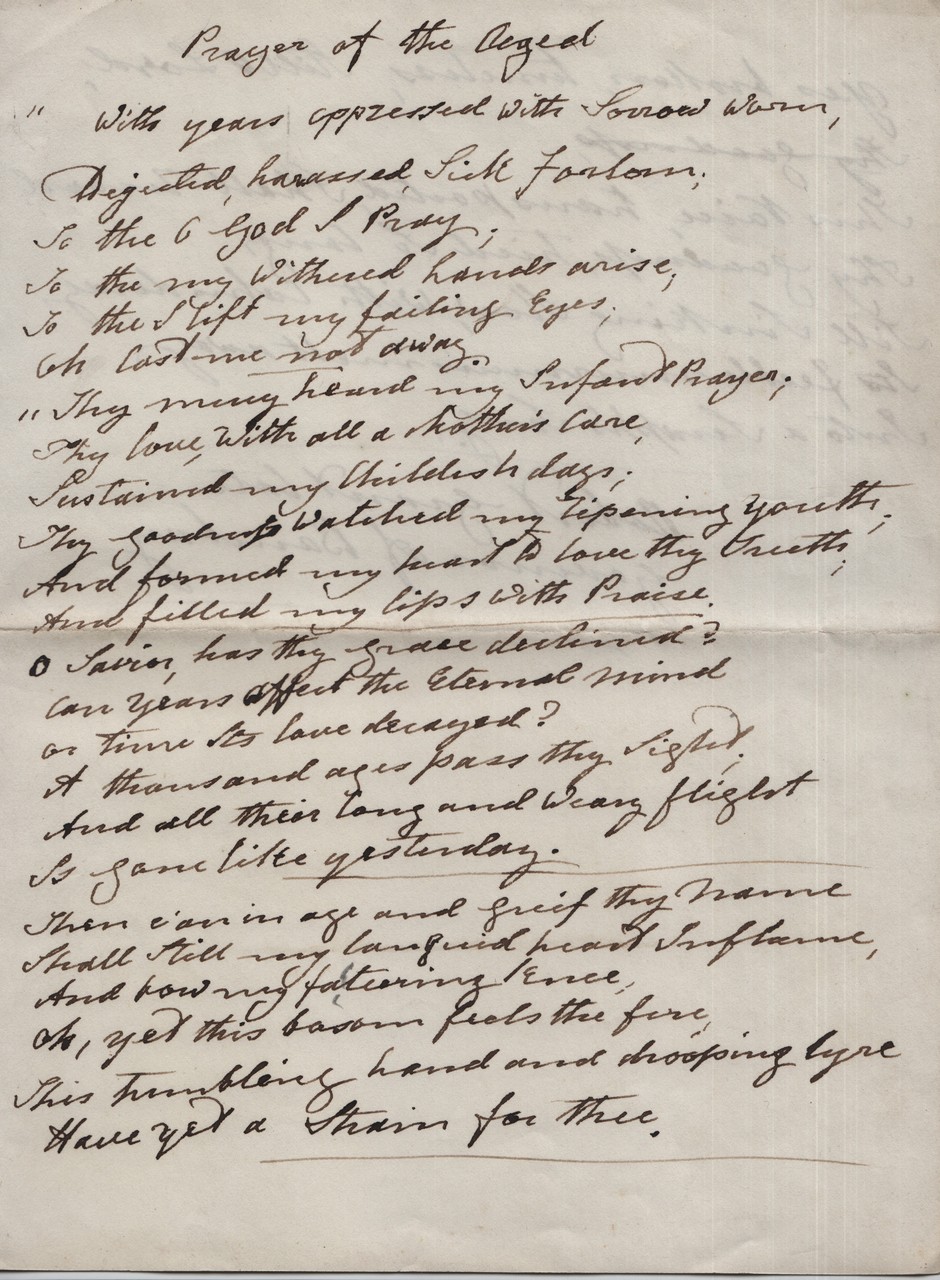 Prayer of the Aged
" With years oppressed with Sorrow worn,
Dejected, harassed, Sick Forlorn;
To the O God I Pray;
To the my withered hands arise;
To the I lift my failing Eyes;
Oh Cast me not away.
" Thy mercy heard my Infant Prayer;
Thy love, With all a Mother's Care,
Sustained my Childish days;
Thy goodness Watched my ripening youth;
And formed my heart to love thy Truth;
And filled my lips with Praise.
O Savior, has thy grace declined?
Can years affect the Eternal Mind
or time Its love decayed?
A thousand ages pass thy Sight,
And all their long and Weary flight
Is gone like yesterday.
Then e'an in age and greif thy Name
Shall Still my languid heart Inflame,
And bow my faltering Knee,
Oh, yet this bosom feels the fire,
This trembling hand and drooping lyre
Have yet a Strain for thee.